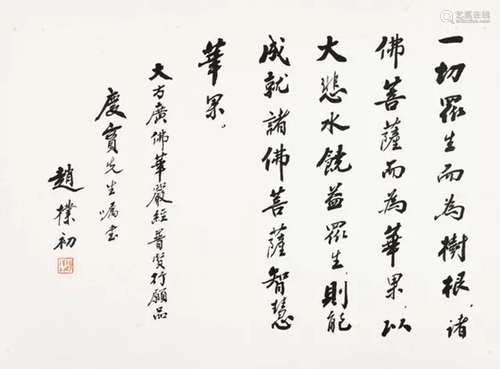 一切眾生而為樹根、諸
佛菩薩而為華果、以
大悲水饒益眾生、則能
成就諸佛菩薩智慧
華果。
大方廣佛華嚴經普賢行願品
慶寶先生囑書
趙樸初